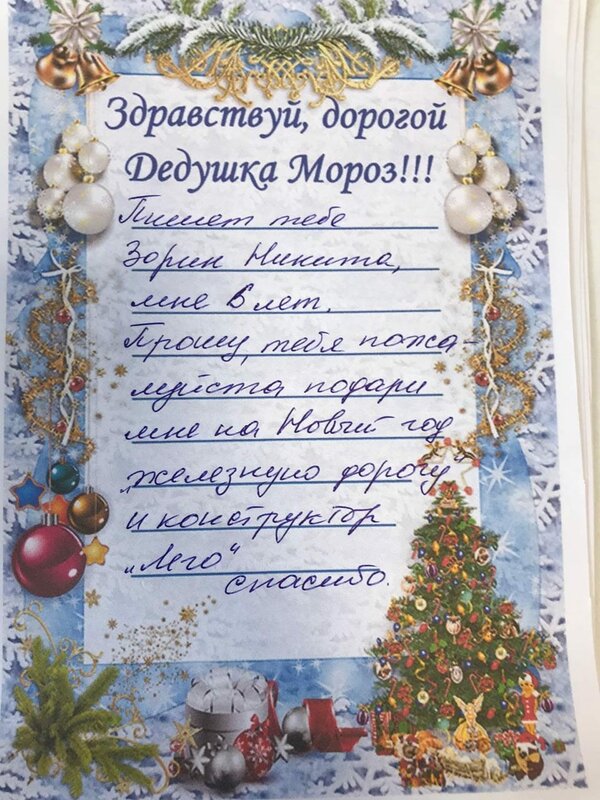 Здравствуй, дорогой
Дедушка Мороз!!!
Пишет тебе
Зорин Никита,
мне 6 лет.
Прошу, тебя пожа-
луйста подари
мне на Новый год
„железную дорогу"
и конструктор
„Лего"
спасибо.